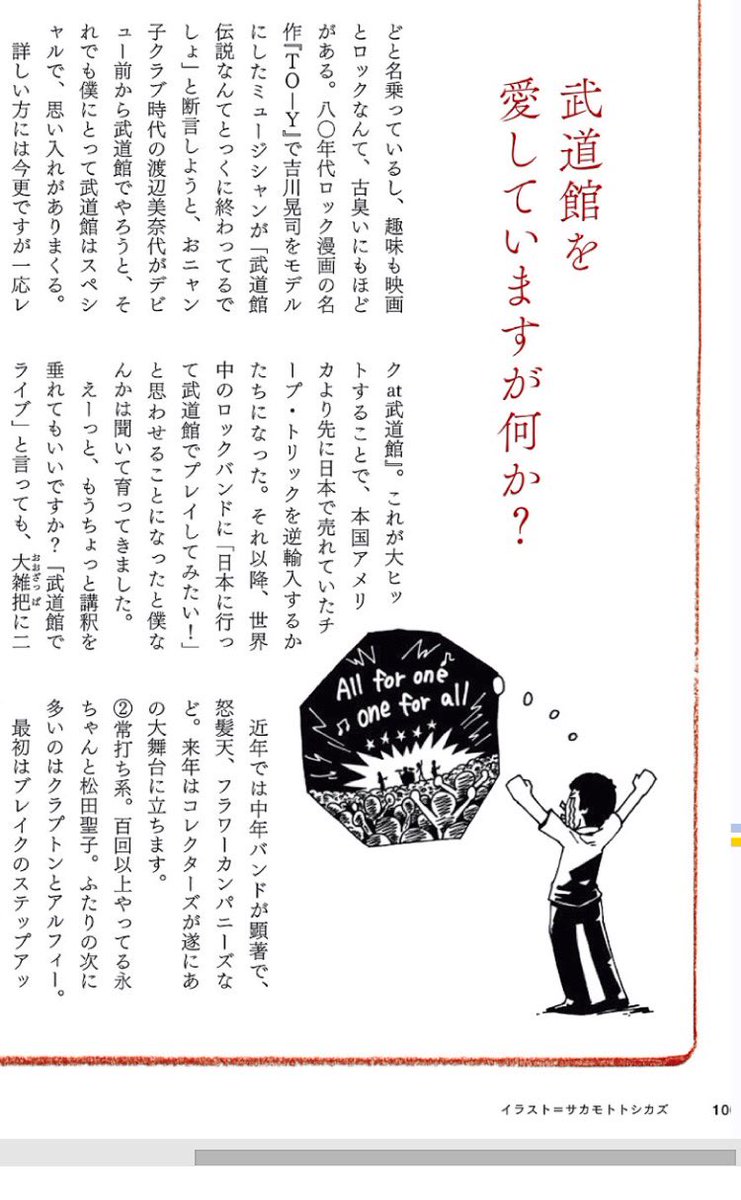 武道館を
愛していますが何か？
どと名乗っているし、趣味も映画
とロックなんて、古臭いにもほど
がある。八〇年代ロック漫画の名
作『TO-Y』で吉川晃司をモデル
にしたミュージシャンが「武道館
伝説なんてとっくに終わってるで
しょ」と断言しようと、おニャン
子クラブ時代の渡辺美奈代がデビ
ュー前から武道館でやろうと、そ
れでも僕にとって武道館はスペシ
ャルで、思い入れがありまくる。
詳しい方には今更ですが一応レ
クat武道館』。これが大ヒッ
トすることで、本国アメリ
カより先に日本で売れていたチ
ープ・トリックを逆輸入するか
たちになった。それ以降、世界
中のロックバンドに「日本に行っ
て武道館でプレイしてみたい！」
と思わせることになったと僕な
んかは聞いて育ってきました。
えーっと、もうちょっと講釈を
垂れてもいいですか？「武道館で
ライブ」と言っても、大雑把に二
おおざっぱ
All for one
one for all
近年では中年バンドが顕著で、
怒髪天、フラワーカンパニーズな
ど。来年はコレクターズが遂にあ
の大舞台に立ちます。
②常打ち系。百回以上やってる永
ちゃんと松田聖子。ふたりの次に
多いのはクラプトンとアルフィー。
最初はブレイクのステップアッ
イラスト＝サカモトトシカズ